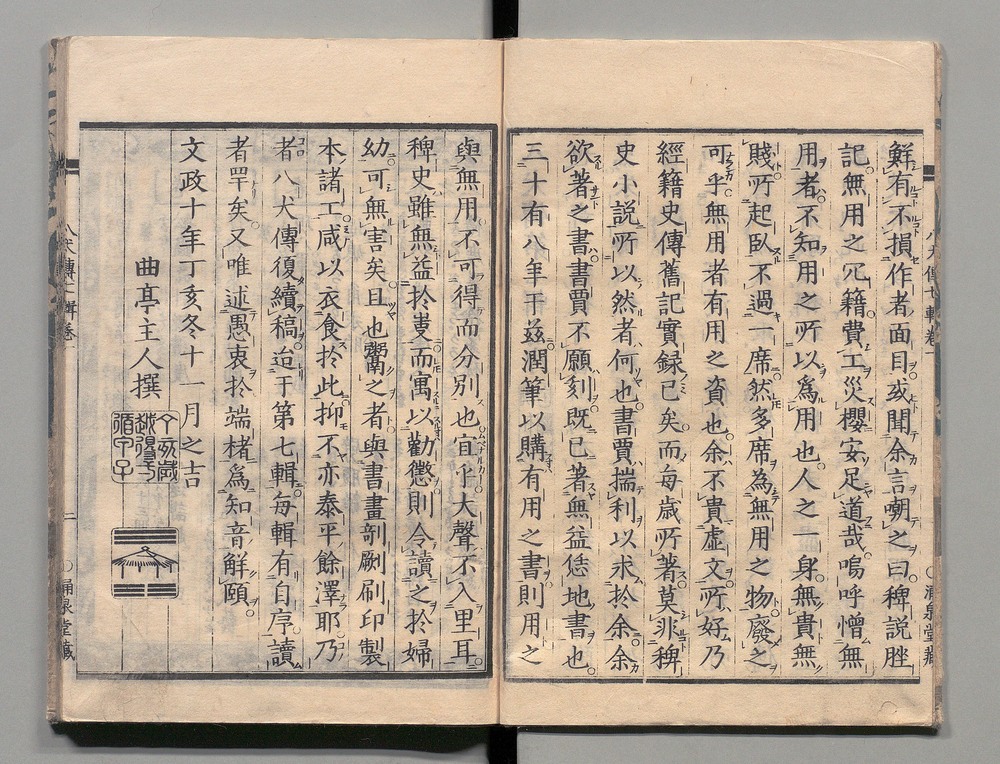 鮮有不損作者面目或聞余言嘲之曰稗說脞
記無用之冗籍費工災櫻安足道哉嗚呼憎無
用者不知用之所以爲用也人之一身無貴無
賤所起臥不過一席然多席為無用之物廢之
可乎無用者有用之資也余不貴虛文所好乃
經籍史傳舊記實録已矣而每歲所著莫非稗
史小說所以然者何也書賈揣利以求於余余
欲著之書書賈不願刻既已著無益恁地書也
三十有八年于茲潤筆以購有用之書則用之
與無用不可得而分別也宜乎大聲不入里耳
稗史雖無益於事而寓以勸懲則令讀之於婦
幼可無害矣且也鬻之者與書畫剞劂刷印製
本諸工咸以衣食於此抑不亦泰平餘澤耶乃
者八犬傳復續稿迨于第七輯每輯有自序讀
者罕矣又唯述愚衷於端楮爲知音解頤
文政十年丁亥冬十一月之吉
曲亭主人撰
八犬傳七輯卷一
二
涌泉堂藏